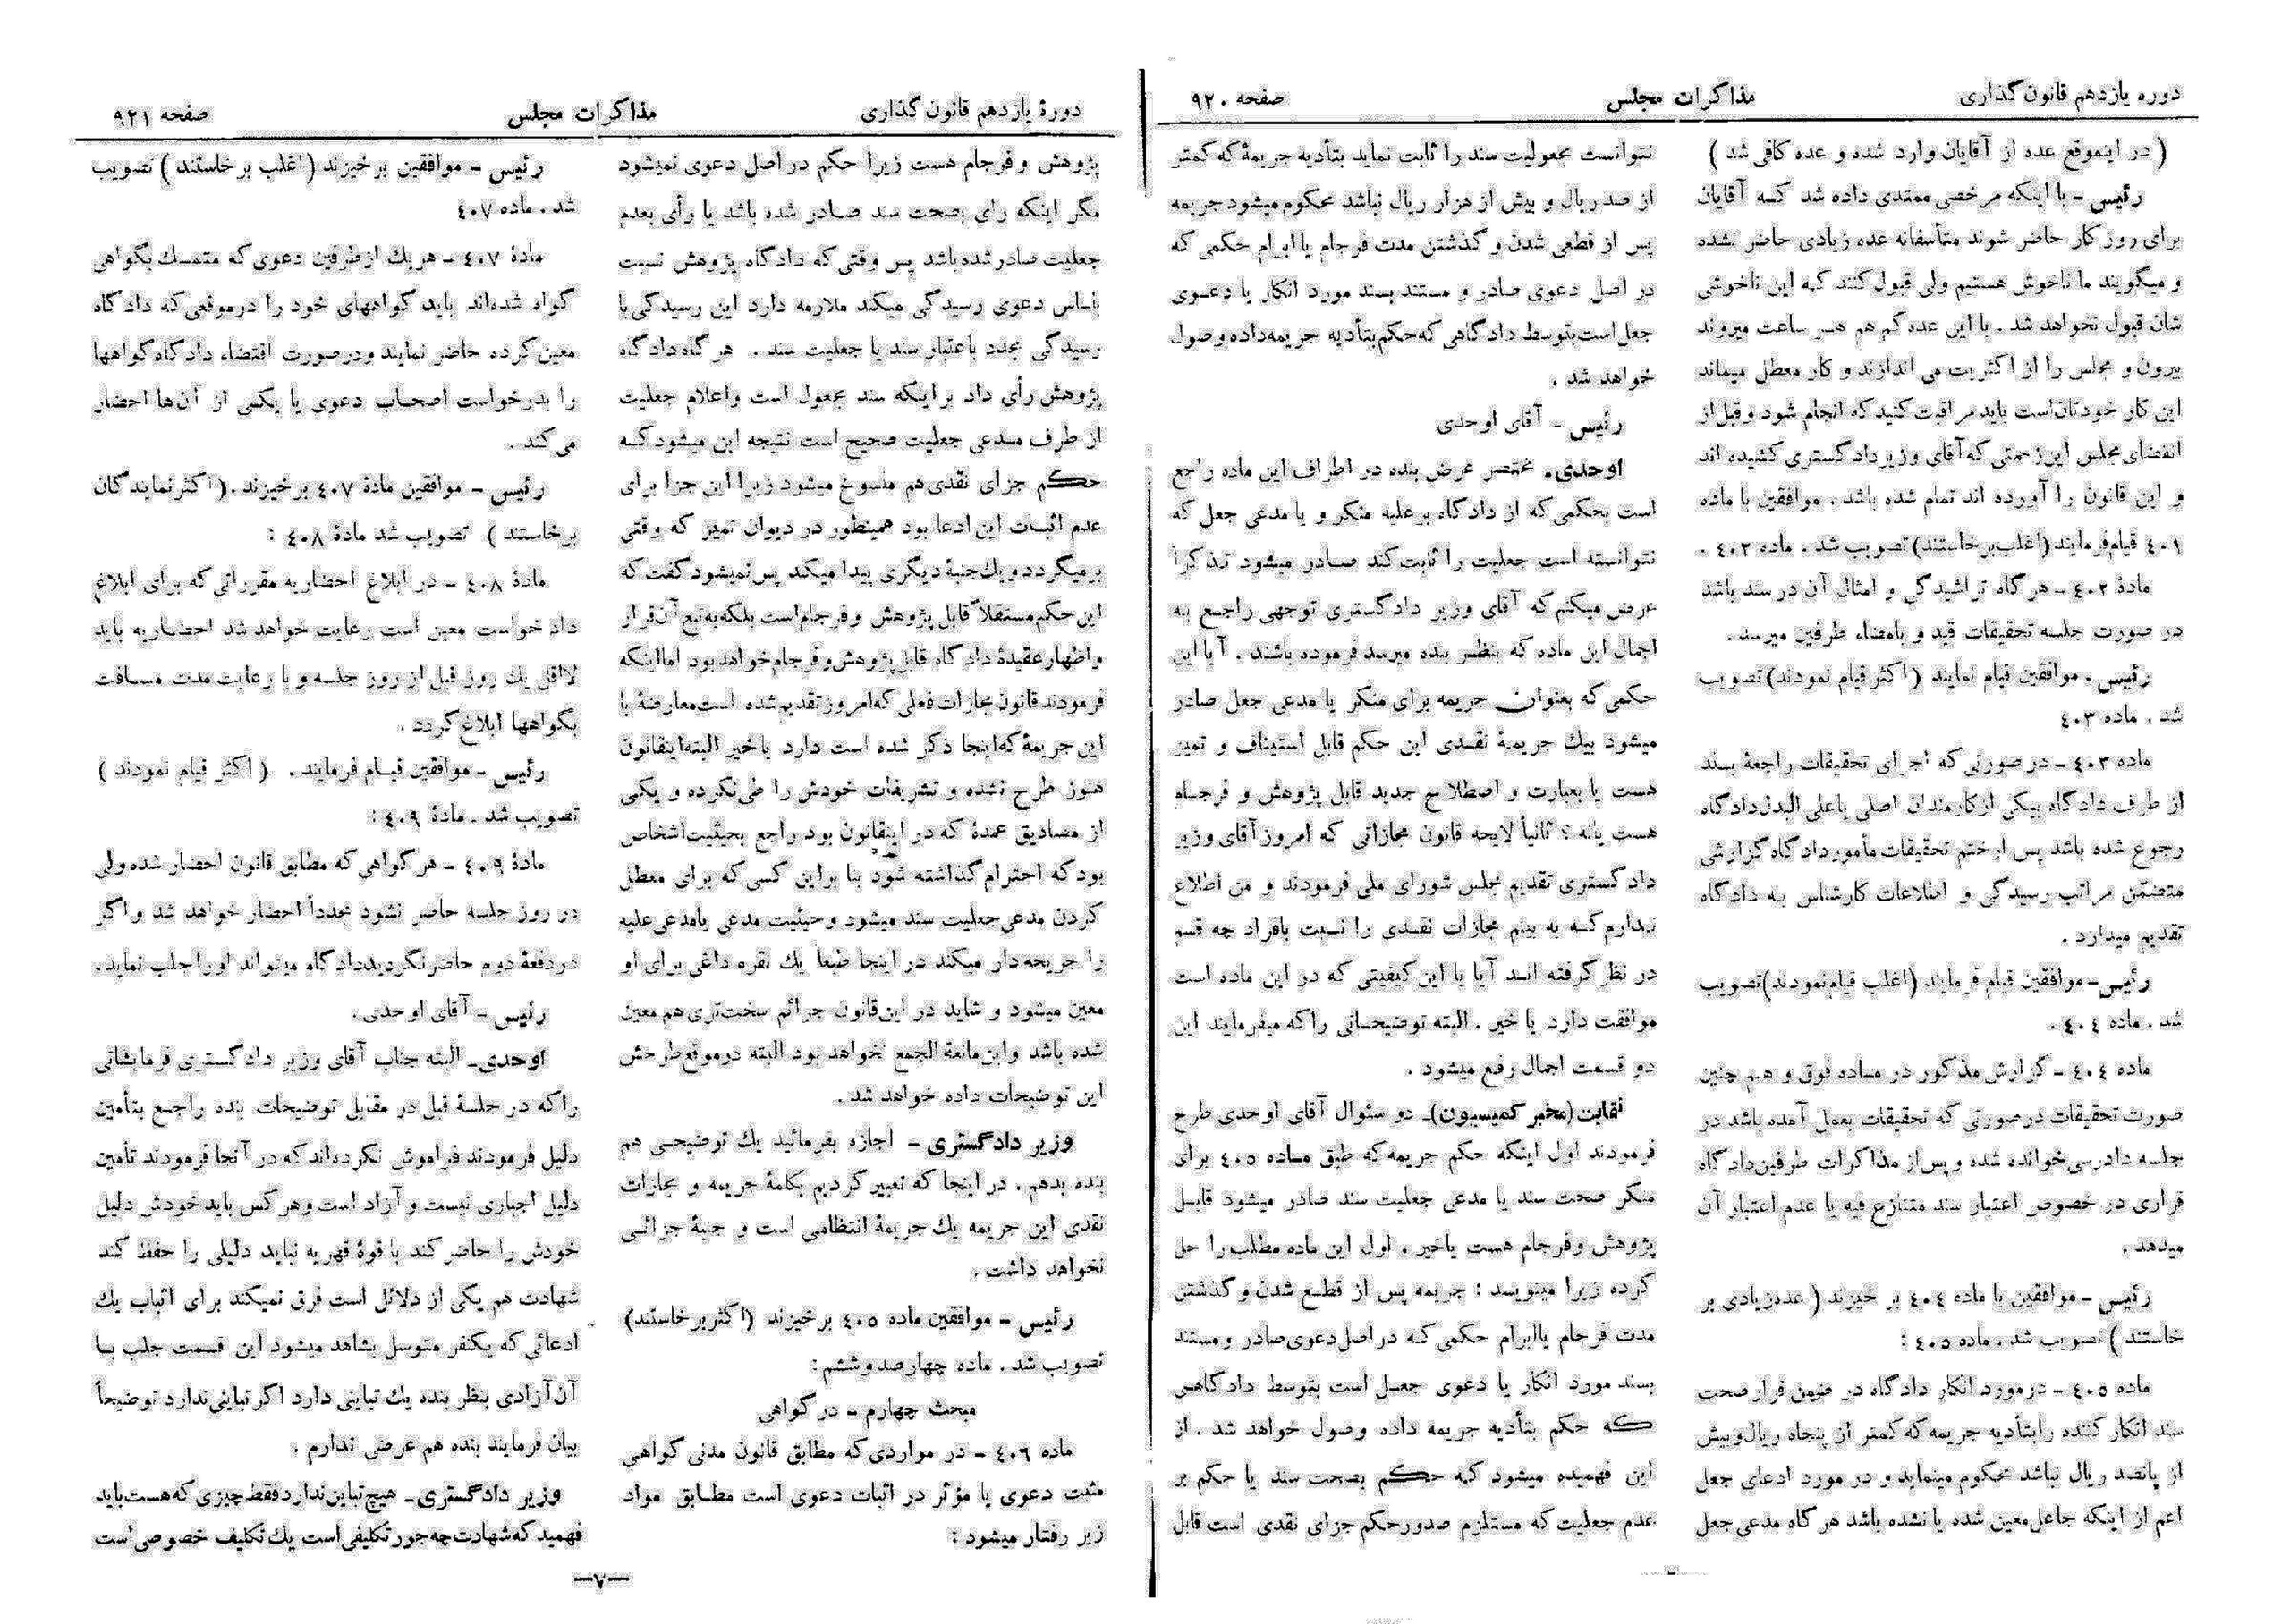 دوره یازدهم قانون گذاری
مذاکرات مجلس
صفحه ۹۲۰
( در اینموقع عده از آقایان وارد شده و عده کافی شد )
رئیس - با اینکه مرخصی ممتدی داده شد که آقایان
برای روز کار حاضر شوند متأسفانه عده زیادی حاضر نشده
و میگویند ما ناخوش هستیم ولی قبول کنند که این ناخوشی
شان قبول نخواهد شد . با این عده کم هم هر ساعت میروند
بیرون و مجلس را از اکثریت می اندازند و کار معطل میماند
این کار خودتان است باید مراقبت کنید که انجام شود و قبل از
انقضای مجلس این زحمتی که آقای وزیر دادگستری کشیده اند
و این قانون را آورده اند تمام شده باشد . موافقین با ماده
٤٠١ قیام فرمایند (اغلب برخاستند) تصویب شد . ماده ٤٠٢ .
مادهٔ ٤٠٢ - هر گاه تراشیدگی و امثال آن در سند باشد
در صورت جلسه تحقیقات قید و بامضاء طرفین میرسد .
رئیس . موافقین قیام نمایند ( اکثر قیام نمودند) تصویب
شد . ماده ٤٠٣
ماده ٤٠٣ - در صورتی که اجرای تحقیقات راجعهٔ بسند
از طرف دادگاه بیکی از کارمندان اصلی یا علی البدل دادگاه
رجوع شده باشد پس از ختم تحقیقات مأمور دادگاه گزارشی
متضمن مراتب رسیدگی و اطلاعات کارشناس به دادگاه
تقدیم میدارد .
رئیس - موافقین قیام فرمایند (اغلب قیام نمودند) تصویب
شد . ماده ٤٠٤ .
ماده ٤٠٤ - گزارش مذکور در ماده فوق و هم چنین
صورت تحقیقات در صورتی که تحقیقات بعمل آمده باشد در
جلسه دادرسی خوانده شده و پس از مذاکرات طرفین دادگاه
قراری در خصوص اعتبار سند متنازع فیه یا عدم اعتبار آن
میدهد .
رئیس - موافقین با ماده ٤٠٤ بر خیزند ( عده زیادی بر
خاستند ) تصویب شد . ماده ٤٠٥ :
ماده ٤٠٥ - در مورد انکار دادگاه در ضمن قرار صحت
سند انکار کننده را بتأدیه جریمه که کمتر از پنجاه ریال و بیش
از پانصد ریال نباشد محکوم مینماید و در مورد ادعای جعل
اعم از اینکه جاعل معین شده یا نشده باشد هر گاه مدعی جعل
نتوانست مجعولیت سند را ثابت نماید بتأدیه جریمهٔ که کمتر
از صد ریال و بیش از هزار ریال نباشد محکوم میشود جریمه
پس از قطعی شدن و گذشتن مدت فرجام یا ابرام حکمی که
در اصل دعوی صادر و مستند بسند مورد انکار یا دعوی
جعل است بتوسط دادگاهی که حکم بتأدیه جریمه داده وصول
خواهد شد .
رئیس - آقای اوحدی
اوحدی . مختصر عرض بنده در اطراف این ماده راجع
است بحکمی که از دادگاه بر علیه منکر و یا مدعی جعل که
نتوانسته است جعلیت را ثابت کند صادر میشود تذکراً
عرض میکنم که آقای وزیر دادگستری توجهی راجع به
اجمال این ماده که بنظر بنده میرسد فرموده باشند . آیا این
حکمی که بعنوان جریمه برای منکر یا مدعی جعل صادر
میشود بیك جریمهٔ نقدی این حکم قابل استیناف و تمیز
هست یا بعبارت و اصطلاح جدید قابل پژوهش و فرجام
هست یا نه ؟ ثانیاً لایحه قانون مجازاتی که امروز آقای وزیر
دادگستری تقدیم مجلس شورای ملی فرمودند و من اطلاع
ندارم که به بینم مجازات نقدی را نسبت بافراد چه قسم
در نظر گرفته اند آیا با این کیفیتی که در این ماده است
موافقت دارد یا خیر . البته توضیحاتی را که میفرمایند این
دو قسمت اجمال رفع میشود .
نقابت (مخبر کمیسیون) - دو سئوال آقای اوحدی طرح
فرمودند اول اینکه حکم جریمه که طبق ماده ٤٠٥ برای
منکر صحت سند یا مدعی جعلیت سند صادر میشود قابل
پژوهش و فرجام هست یا خیر . اول این ماده مطلب را حل
کرده زیرا مینویسد : جریمه پس از قطع شدن و گذشتن
مدت فرجام یا ابرام حکمی که در اصل دعوی صادر و مستند
بسند مورد انکار یا دعوی جعل است بتوسط دادگاهی
که حکم بتأدیه جریمه داده وصول خواهد شد . از
این فهمیده میشود که حکم بصحت سند یا حکم بر
عدم جعلیت که مستلزم صدور حکم جزای نقدی است قابل
دورهٔ یازدهم قانون گذاری
مذاکرات مجلس
صفحه ۹۲۱
پژوهش و فرجام هست زیرا حکم در اصل دعوی نمیشود
مگر اینکه رای بصحت سند صادر شده باشد یا رأی بعدم
جعلیت صادر شده باشد پس وقتی که دادگاه پژوهش نسبت
باساس دعوی رسیدگی میکند ملازمه دارد این رسیدگی با
رسیدگی مجدد باعتبار سند یا جعلیت سند . هر گاه دادگاه
پژوهش رأی داد بر اینکه سند مجعول است و اعلام جعلیت
از طرف مدعی جعلیت صحیح است نتیجه این میشود که
حکم جزای نقدی هم منسوخ میشود زیرا این جزا برای
عدم اثبات این ادعا بود همینطور در دیوان تمیز که وقتی
برمیگردد و یك جنبهٔ دیگری پیدا میکند پس نمیشود گفت که
این حکم مستقلاً قابل پژوهش و فرجام است بلکه به تبع آن قرار
و اظهار عقیدهٔ دادگاه قابل پژوهش و فرجام خواهد بود اما اینکه
فرمودند قانون مجازات فعلی که امروز تقدیم شده است معارضهٔ با
این جریمهٔ که اینجا ذکر شده است دارد یا خیر البته اینقانون
هنوز طرح نشده و تشریفات خودش را طی نکرده و یکی
از مصادیق عمدهٔ که در اینقانون بود راجع بحیثیت اشخاص
بود که احترام گذاشته شود بنا براین کسی که برای معطل
کردن مدعی جعلیت سند میشود و حیثیت مدعی یا مدعی علیه
را جریحه دار میکند در اینجا طبعاً یك نقره داغی برای او
معین میشود و شاید در این قانون جرائم سخت تری هم معین
شده باشد و این مانعة الجمع نخواهد بود البته در موقع طرحش
این توضیحات داده خواهد شد .
وزیر دادگستری - اجازه بفرمائید یك توضیحی هم
بنده بدهم . در اینجا که تعبیر کردیم بکلمهٔ جریمه و مجازات
نقدی این جریمه یك جریمهٔ انتظامی است و جنبهٔ جزائی
نخواهد داشت .
رئیس - موافقین ماده ٤٠٥ برخیزند (اکثر برخاستند)
تصویب شد . ماده چهارصد و ششم :
مبحث چهارم - در گواهی
ماده ٤٠٦ - در مواردی که مطابق قانون مدنی گواهی
مثبت دعوی یا مؤثر در اثبات دعوی است مطابق مواد
زیر رفتار میشود :
رئیس - موافقین برخیزند (اغلب برخاستند ) تصویب
شد . ماده ٤٠٧
مادهٔ ٤٠٧ - هر یك از طرفین دعوی که متمسك بگواهی
گواه شده اند باید گواههای خود را در موقعی که دادگاه
معین کرده حاضر نمایند و در صورت اقتضاء دادگاه گواهها
را بدرخواست اصحاب دعوی یا یکی از آن ها احضار
می کند .
رئیس - موافقین مادهٔ ٤٠٧ برخیزند . ( اکثر نمایندگان
برخاستند ) تصویب شد مادهٔ ٤٠٨ :
مادهٔ ٤٠٨ - در ابلاغ احضاریه مقرراتی که برای ابلاغ
داد خواست معین است رعایت خواهد شد احضاریه باید
لااقل یك روز قبل از روز جلسه و با رعایت مدت مسافت
بگواهها ابلاغ گردد .
رئیس - موافقین قیام فرمایند . ( اکثر قیام نمودند )
تصویب شد . مادهٔ ٤٠٩ :
مادهٔ ٤٠٩ - هر گواهی که مطابق قانون احضار شده ولی
در روز جلسه حاضر نشود مجدداً احضار خواهد شد و اگر
در دفعهٔ دوم حاضر نگردید دادگاه میتواند او را جلب نماید .
رئیس - آقای اوحدی .
اوحدی - البته جناب آقای وزیر دادگستری فرمایشاتی
را که در جلسهٔ قبل در مقابل توضیحات بنده راجع بتأمین
دلیل فرمودند فراموش نکرده اند که در آنجا فرمودند تأمین
دلیل اجباری نیست و آزاد است و هر کس باید خودش دلیل
خودش را حاضر کند با قوهٔ قهریه نباید دلیلی را حفظ کند
شهادت هم یکی از دلائل است فرق نمیکند برای اثبات یك
ادعائی که یکنفر متوسل بشاهد میشود این قسمت جلب با
آن آزادی بنظر بنده یك تباینی دارد اگر تباینی ندارد توضیحاً
بیان فرمایند بنده هم عرضی ندارم .
وزیر دادگستری - هیچ تباین ندارد فقط چیزی که هست باید
فهمید که شهادت چه جور تکلیفی است یك تکلیف خصوصی است
—٧—